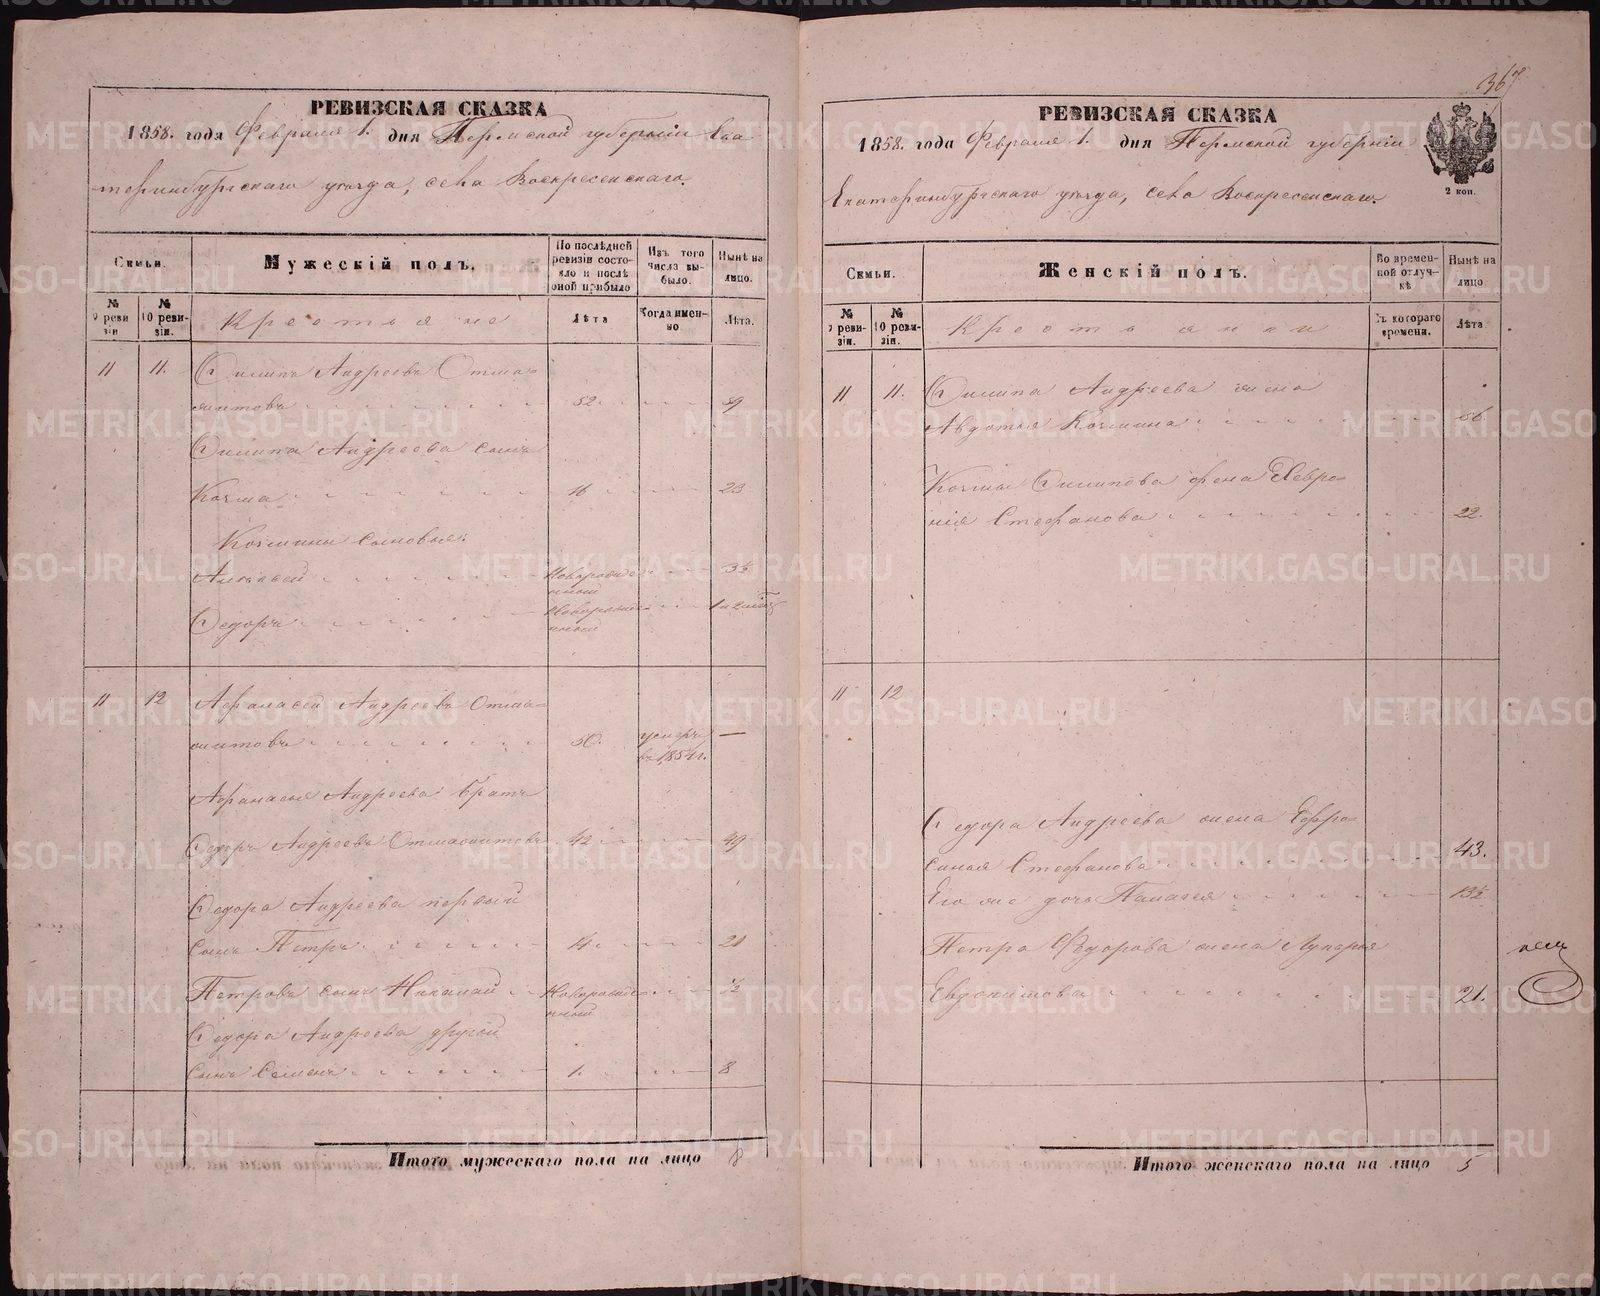 РЕВИЗСКАЯ СКАЗКА
1858. года Февраля 1. дня Пермской губернiи Ека
теринбургскаго уѣзда, села Воскресенскаго.
Семьи.
Мужескiй полъ.
По послѣдней ревизiи состояло и послѣ оной прибыло
Изъ того числа выбыло.
Нынѣ на лицо.
№ 9 ревизiи
№ 10 ревизiи.
Крестьяне
Лѣта
Когда именно
Лѣта.
11 11. Филипъ Андреевъ Отма-
52. 59
Филипа Андреева сынъ
Козма 16 23
Козмины сыновья:
Алексѣй Новорожденный 3½
Федоръ Новорожденный 1 и 2
11 12 Афанасей Андреевъ Отма-
50. умеръ —
въ 185 г.
Афанасья Андреева братъ
Федоръ Андреевъ 42 49
Федора Андреева первый
сынъ Петръ 14. 21
Петровъ сынъ Николай Новорожденный ½
Федора Андреева другой
сынъ Семенъ 1. 8
Итого мужескаго пола на лицо 8
367
РЕВИЗСКАЯ СКАЗКА
1858. года Февраля 1. дня Пермской губернiи
Екатеринбургскаго уѣзда, села Воскресенскаго.
2 коп.
Семьи.
Женскiй полъ.
Во временной отлучкѣ
Нынѣ на лицо
№ 9 ревизiи.
№ 10 ревизiи.
Крестьянки
Съ котораго времени.
Лѣта
11 11. Филипа Андреева жена
Авдотья Козмина 56
Козмы Филипова жена Хевро-
нiя Стефанова 22.
11 12
Федора Андреева жена Ефро-
синья Стефанова 43.
Его же дочь Палагея 13½
Петра Федорова жена Лукерья
Евдокимова 21.
Итого женскаго пола на лицо 5
METRIKI.GASO-URAL.RU